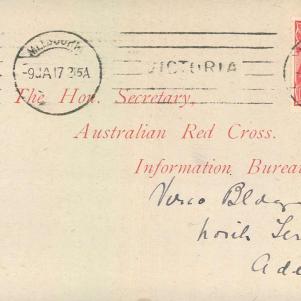 MELBOURN
-9JA17 215A
VICTORIA
The Hon. Secretary,
Australian Red Cross.
Information Bureau
Verco Bldg
North Ter
Ade